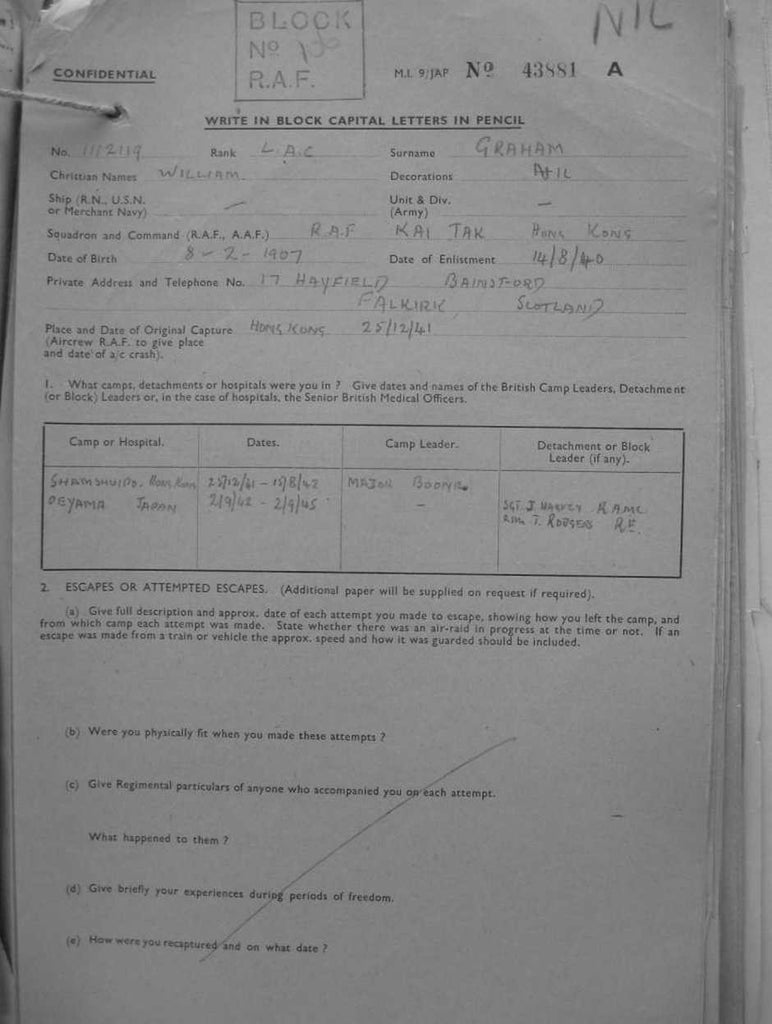 BLOCK
Nº
R.A.F.
NIL
CONFIDENTIAL
M.I. 9/JAP Nº 43881 A
WRITE IN BLOCK CAPITAL LETTERS IN PENCIL
No. 1112119 Rank L.A.C Surname GRAHAM
Christian Names WILLIAM Decorations NIL
Ship (R.N., U.S.N. or Merchant Navy) — Unit & Div. (Army) —
Squadron and Command (R.A.F., A.A.F.) R.A.F KAI TAK HONG KONG
Date of Birth 8-2-1907 Date of Enlistment 14/8/40
Private Address and Telephone No. 17 HAYFIELD BAINSFORD
FALKIRK SCOTLAND
Place and Date of Original Capture HONG KONG 25/12/41
(Aircrew R.A.F. to give place
and date of a/c crash).
1. What camps, detachments or hospitals were you in ? Give dates and names of the British Camp Leaders, Detachment
(or Block) Leaders or, in the case of hospitals, the Senior British Medical Officers.
Camp or Hospital. Dates. Camp Leader. Detachment or Block Leader (if any).
SHAMSHUIPO. HONG KONG 25/12/41 - 15/8/42 MAJOR BOON
OEYAMA JAPAN 2/9/42 - 2/9/45 - SGT. J. HARVEY RAMC
T. RODGERS R.E.
2. ESCAPES OR ATTEMPTED ESCAPES. (Additional paper will be supplied on request if required).
(a) Give full description and approx. date of each attempt you made to escape, showing how you left the camp, and
from which camp each attempt was made. State whether there was an air-raid in progress at the time or not. If an
escape was made from a train or vehicle the approx. speed and how it was guarded should be included.
(b) Were you physically fit when you made these attempts ?
(c) Give Regimental particulars of anyone who accompanied you on each attempt.
What happened to them ?
(d) Give briefly your experiences during periods of freedom.
(e) How were you recaptured and on what date ?